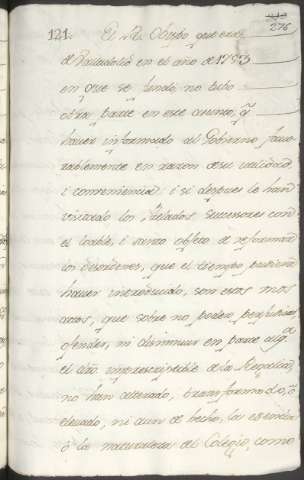 276
121. El R. Obispo, que era
de Valladolid en el año de 1753
en que se fundó no tubo
otra parte en este asunto, q
haver informado al Gobierno favo
rablemente en razon de su utilidad
i conveniencia: i si despues le han
visitado los Prelados successores con
el loable, i santo effeto de reformar
los desordenes, que el tiempo pudiera
haver introducido, son estos mos
actos, que sobre no poder perjudicar,
ofender, ni disminuir en parte alg.ª
el dño imprescriptible de la Regalia,
no han alterado, transformado, o
elevado, ni aun de hecho, la essencia
ô la naturaleza del Colegio, como